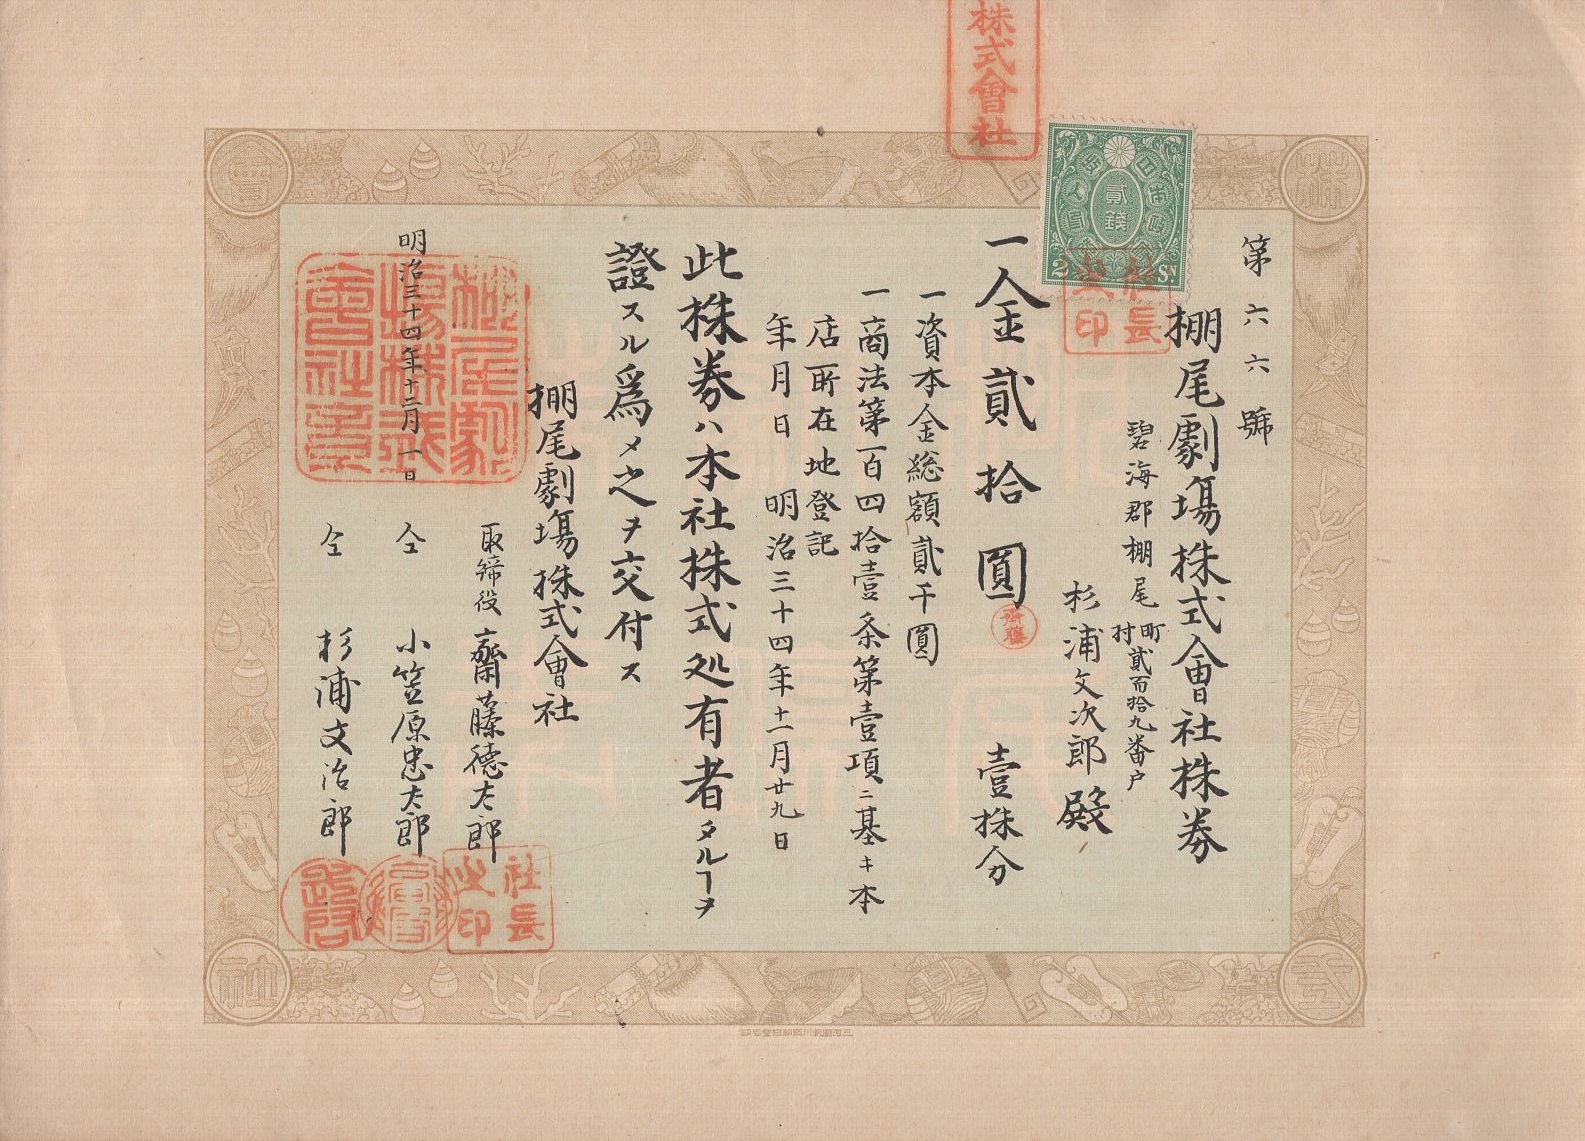 第六六號
棚尾劇塲株式會社株券
碧海郡棚尾町村貳百拾九番戸
杉浦文次郎殿
一金貳拾圓 壹株分
一資本金総額貳千圓
一商法第一百四拾壹条第壹項ニ基キ本
店所在地登記
年月日 明治三十四年十一月廿九日
此株券ハ本社株式処有者タルヿヲ
證スル爲メ之ヲ交付ス
棚尾劇塲株式會社
明治三十四年十二月一日
取締役 齋藤德太郎
仝 小笠原忠太郎
仝 杉浦文治郎
株式會社
貳錢
2 Sn
社長之印
齋藤
棚尾劇塲株式會社之章
社長之印
株
式
會
社